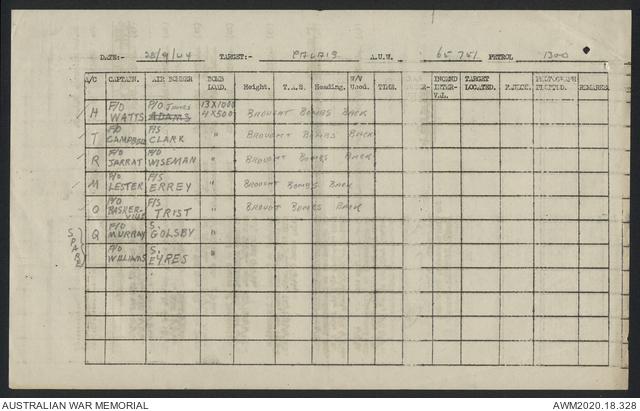 DATE:- 28/9/44 TARGET:- CALAIS A.U.W. 65751 PETROL 1300
A/C CAPTAIN. AIR BOMBER BOMB LOAD. Height. T.A.S. Heading. W/V Used. TIME. INTERVAL. TARGET LOCATED. PHOTOGRAPH REMARKS.
H F/O WATTS P/O Jones ADAMS 13X1000 4X500 BROUGHT BOMBS BACK
T F/O CAMPBELL F/S CLARK " BROUGHT BOMBS BACK
R F/O JARRAT F/O WISEMAN " BROUGHT BOMBS BACK
M F/O LESTER F/S ERREY " BROUGHT BOMBS BACK
O F/O BASKER-VILLE F/S TRIST " BROUGHT BOMBS BACK
SPARE
Q F/O MURRAY S. GOLSBY "
F/O WILLIAMS S. EYRES "
AUSTRALIAN WAR MEMORIAL AWM2020.18.328